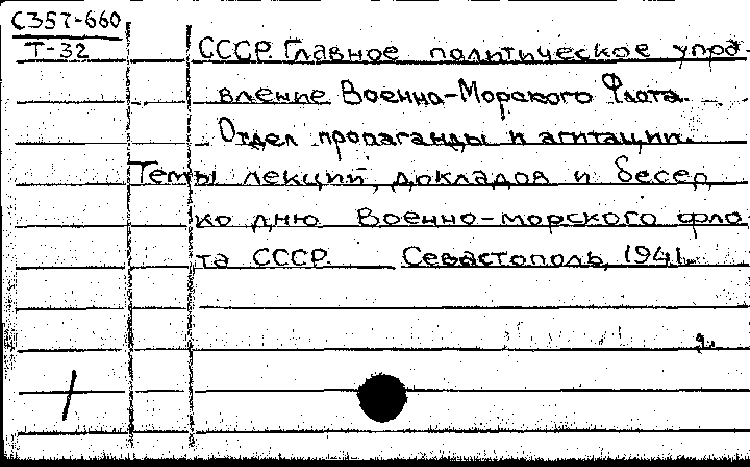 С357-660
Т-32
СССР. Главное политическое упра-
вление Военно-Морского Флота.
Отдел пропаганды и агитации.
Темы лекций, докладов и бесед
ко дню Военно-морского фло-
та СССР. Севастополь, 1941.